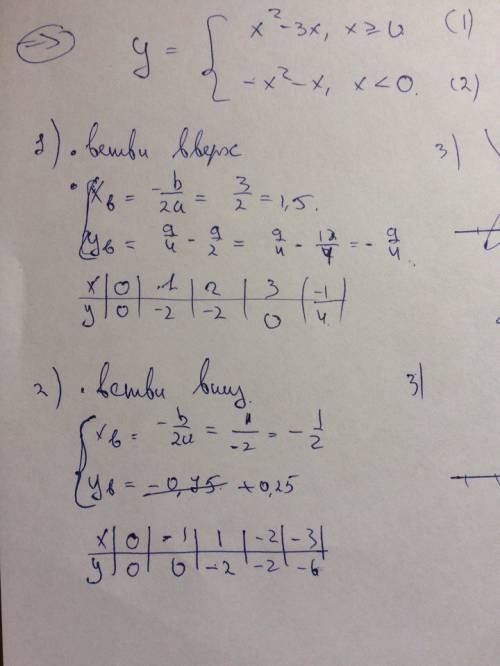 => y = { x² - 3x, x ≥ 0 (1)
-x² - x, x < 0. (2)
1) · ветви вверх 3)
· { xв = -b/2a = 3/2 = 1,5.
yв = 9/4 - 9/2 = 9/4 - 18/4 = - 9/4.
x | 0 | 1 | 2 | 3 | (-1 |
y | 0 | -2 | -2 | 0 | 4 |
2) · ветви вниз. 3)
{ xв = -b/2a = 1/-2 = - 1/2
yв = -0,75. +0,25
x | 0 | -1 | 1 | -2 | -3 |
y | 0 | 0 | -2 | -2 | -6